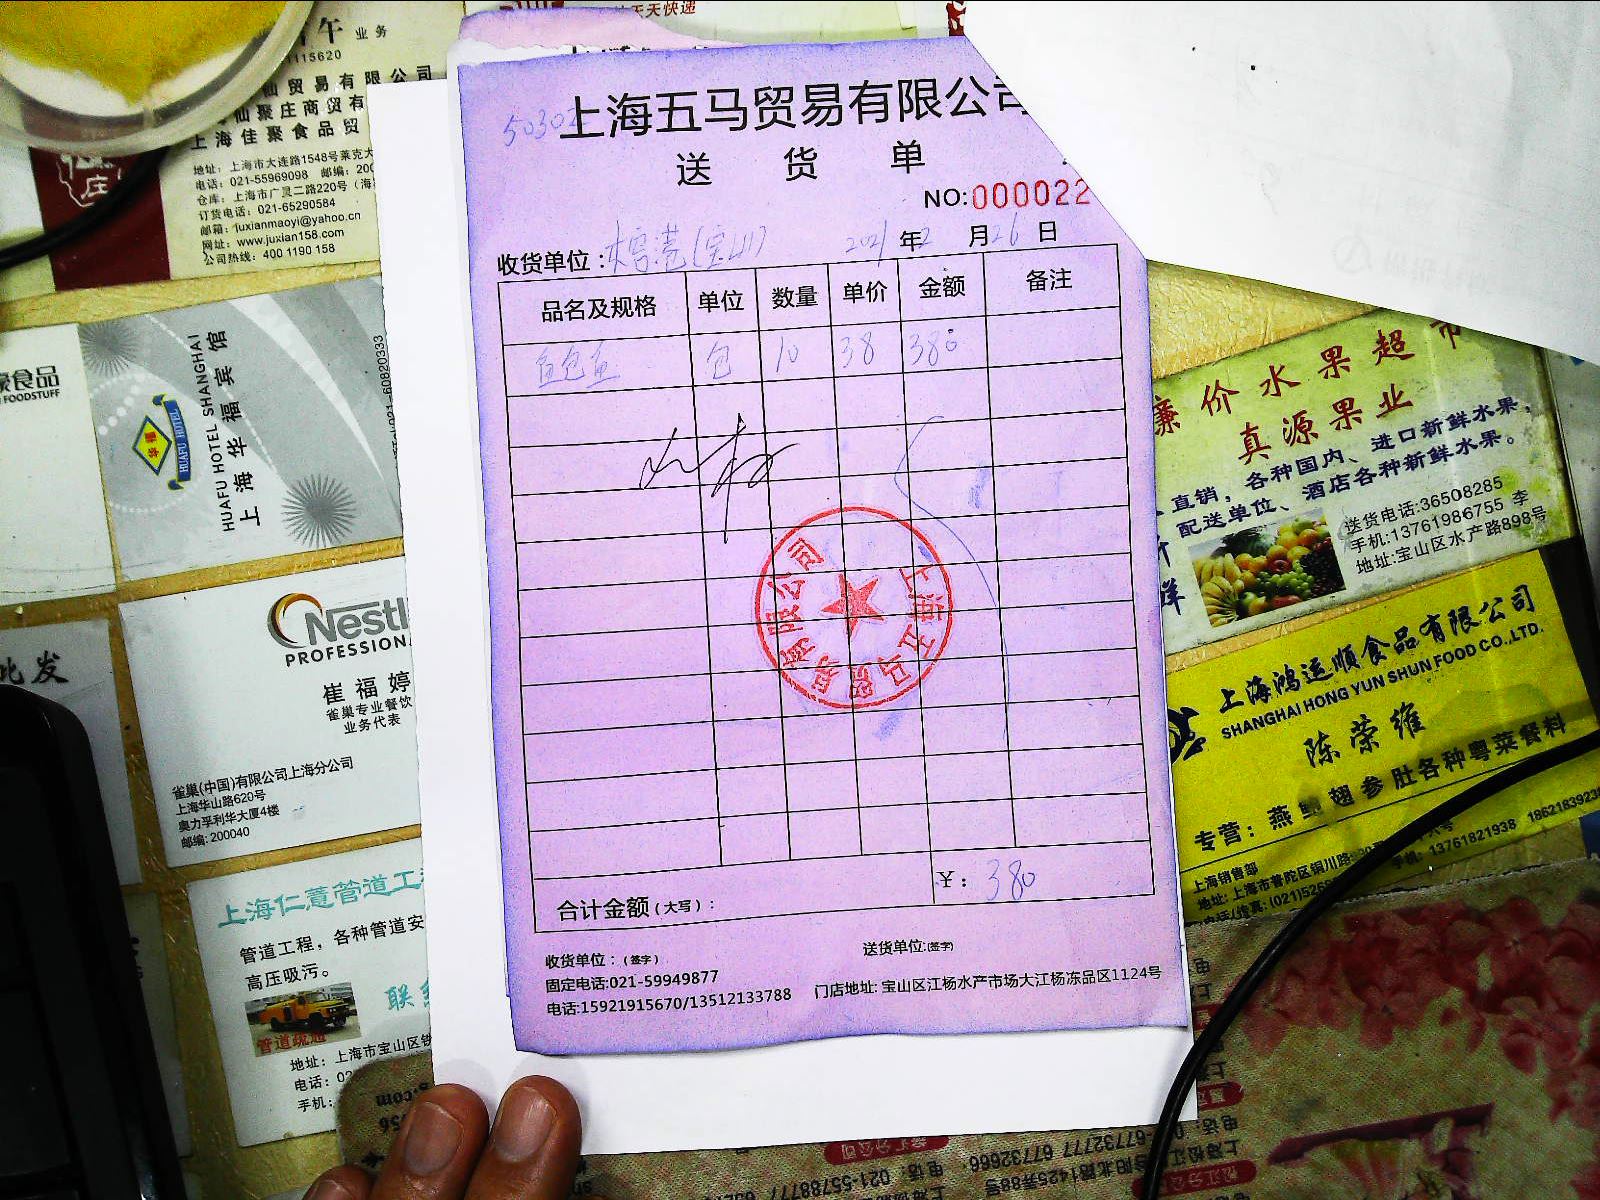 天天快递
午 业务
1115620
仙贸易有限公司
仙聚庄商贸有
上海佳聚食品贸
地址：上海市大连路1548号莱克大
电话：021-55969098 邮编：200
仓库：上海市广灵二路220号（海
订货电话：021-65290584
邮箱：juxianmaoyi@yahoo.cn
网址：www.juxian158.com
公司热线：400 1190 158
50302
上海五马贸易有限公司
送货单
NO:000022
收货单位： (宝山) 2021年2月26日
品名及规格 单位 数量 单价 金额 备注
鱼包鱼 包 10 38 380
上海五马贸易有限公司
合计金额(大写)： ¥：380
收货单位：(签字) 送货单位:(签字)
固定电话:021-59949877
电话:15921915670/13512133788 门店地址: 宝山区江杨水产市场大江杨冻品区1124号
食品
FOODSTUFF
华福
HUAFU HOTEL
HUAFU HOTEL SHANGHAI
上海华福宾馆
021-60820333
Nestl
PROFESSIONA
崔福婷
雀巢专业餐饮
业务代表
雀巢(中国)有限公司上海分公司
上海华山路620号
奥力孚利华大厦4楼
邮编: 200040
批发
上海仁薏管道工
管道工程，各种管道安
高压吸污。
联
管道疏通
地址：上海市宝山区铁
电话：02
手机：
廉价水果超市
真源果业
直销，各种国内、进口新鲜水果，
配送单位、酒店各种新鲜水果。
送货电话:36508285
手机:13761986755 李
地址:宝山区水产路898号
上海鸿运顺食品有限公司
SHANGHAI HONG YUN SHUN FOOD CO.,LTD.
陈荣维
专营：燕鲍翅参肚各种粤菜餐料
上海销售部
地址: 上海市普陀区铜川路
电话/传真: (021)526 手机: 13761821938 1862183923